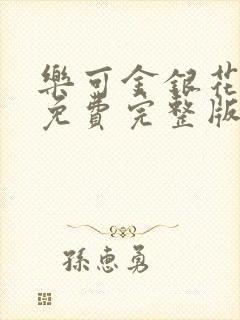 樂可金銀花
免費完整版
孫惠勇